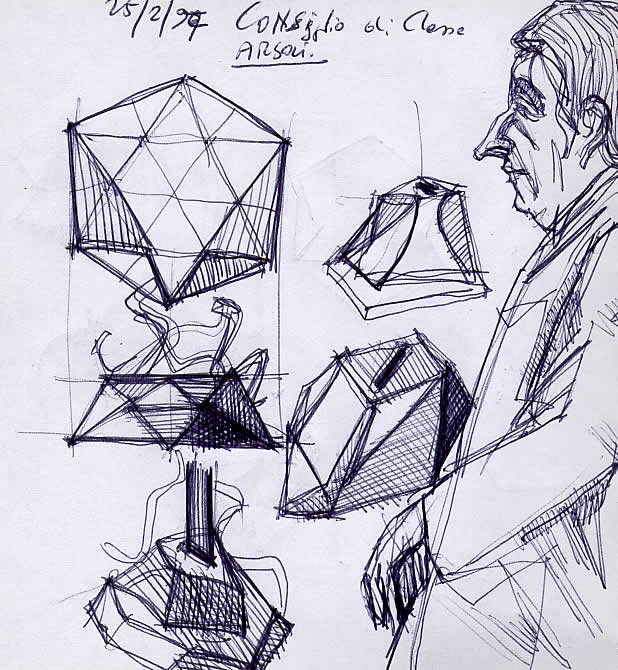 25/2/97 Consiglio di Classe
ARSOLI.